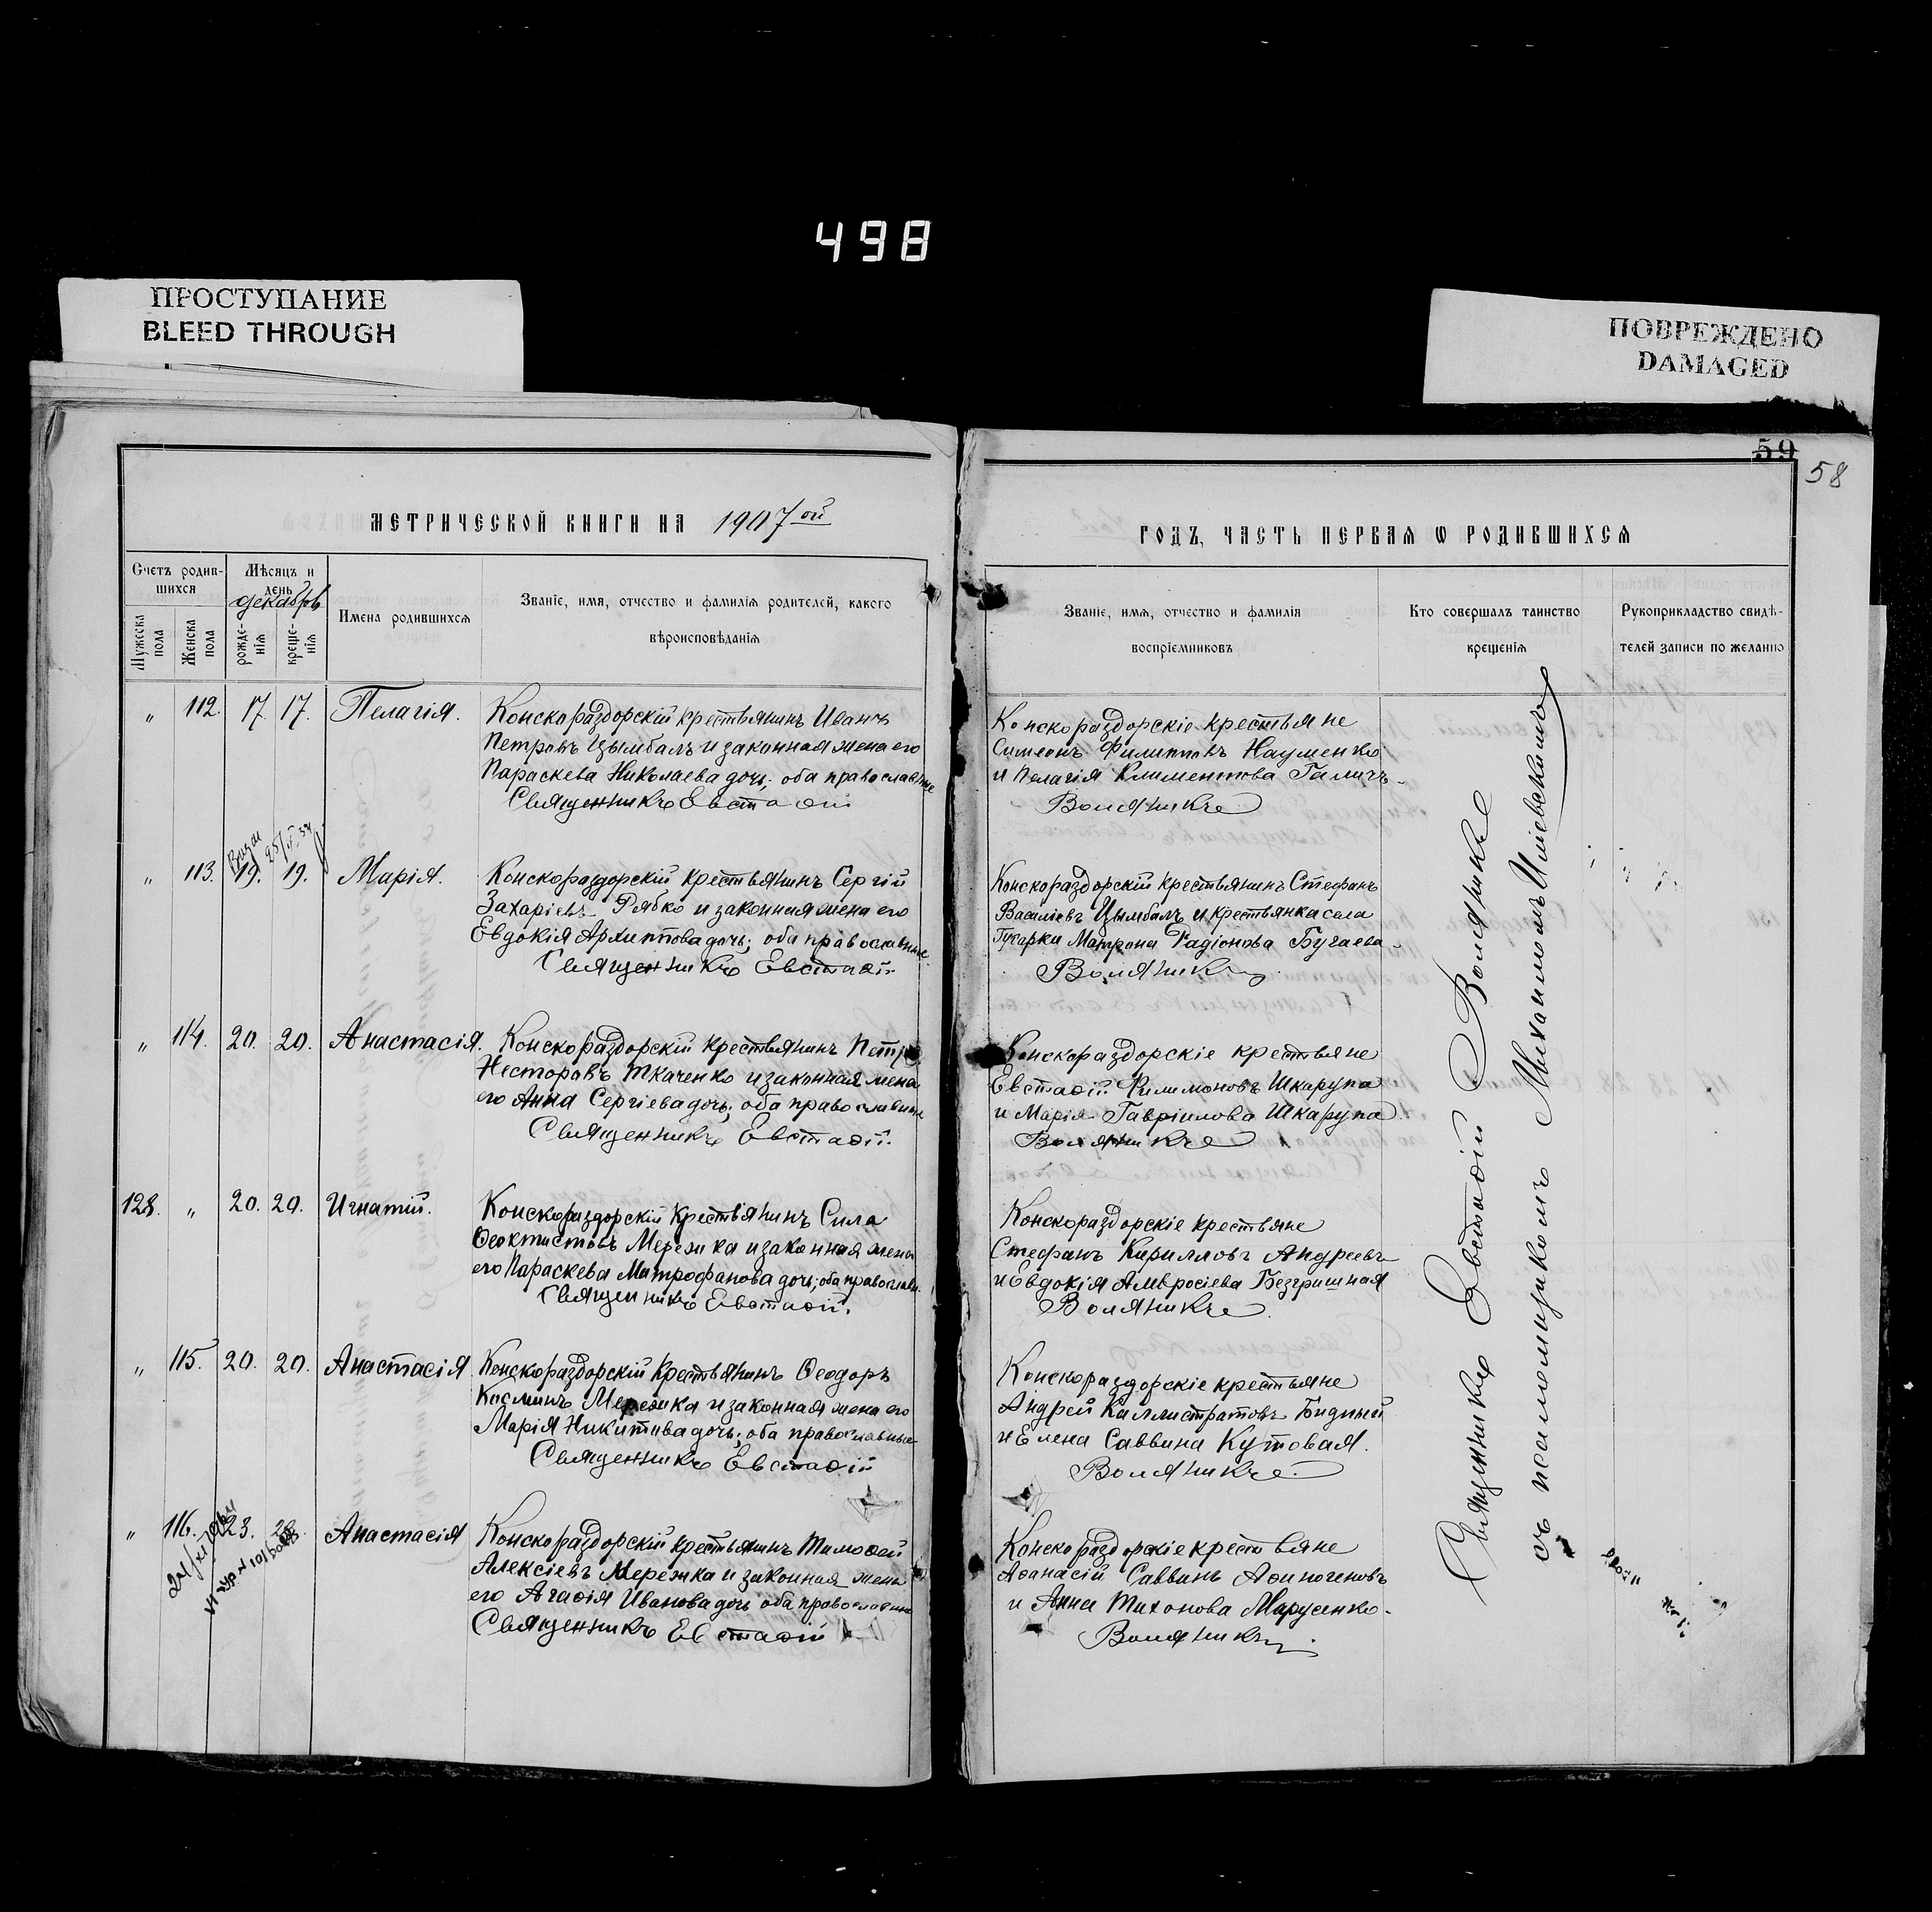 498
ПРОСТУПАНИЕ
BLEED THROUGH
ПОВРЕЖДЕНО
DAMAGED
59
58
МЕТРИЧЕСКОЙ КНИГИ НА 1907ой
ГОДЪ, ЧАСТЬ ПЕРВАЯ Ѡ РОДИВШИХСЯ
Счетъ родив-
шихся
Мужеска пола
Женска пола
Мѣсяцъ и
день
декабрь
рожде-
нія
креще-
нія
Имена родившихся
Званіе, имя, отчество и фамилія родителей, какого
вѣроисповѣданія
Званіе, имя, отчество и фамилія
воспріемниковъ
Кто совершалъ таинство
крещенія
Рукоприкладство свидѣ-
телей записи по желанію
" 112. 17. 17. Пелагія.
Конскораздорскій крестьянинъ Иванъ
Петровъ Цымбалъ и законная жена его
Параскева Николаева дочь; оба православные
Священникъ Евстаѳій
Конскораздорскіе крестьяне
Симеонъ Филиповъ Науменко
и Пелагія Климентова Галичъ.
Воляникъ
" 113. 19. 19. Марія.
Конскораздорскій крестьянинъ Сергій
Захаріевъ Рябко и законная жена его
Евдокія Архипова дочь; оба православные.
Священникъ Евстаѳій
Конскораздорскій крестьянинъ Стефанъ
Василіевъ Цымбалъ и крестьянка села
Гусарки Матрона Радіонова Бугаева.
Воляникъ
" 114. 20. 20. Анастасія.
Конскораздорскій крестьянинъ Петръ
Несторовъ Ткаченко и законная жена
его Анна Сергіева дочь; оба православные
Священникъ Евстаѳій.
Конскораздорскіе крестьяне
Евстаѳій Филимоновъ Шкарупа
и Марія Гавріилова Шкарупа.
Воляникъ
128. " 20. 20. Игнатій.
Конскораздорскій крестьянинъ Сила
Ѳеоктистовъ Мережка и законная жена
его Параскева Митрофанова дочь; оба православн.
Священникъ Евстаѳій.
Конскораздорскіе крестьяне
Стефанъ Кирилловъ Андреевъ
и Евдокія Амвросіева Безгришная
Воляникъ.
" 115. 20. 20. Анастасія
Конскораздорскій крестьянинъ Ѳеодоръ
Косминъ Мережка и законная жена его
Марія Никитива дочь; оба православные
Священникъ Евстаѳій
Конскораздорскіе крестьяне
Андрей Каллистратовъ Бидный
и Елена Саввина Кутовая.
Воляникъ.
" 116. 23. Анастасія
Конскораздорскій крестьянинъ Тимоѳей
Алексіевъ Мережка и законная жена
его Агаѳія Иванова дочь оба православные
Священникъ Евстаѳій
Конскораздорскіе крестьяне
Аѳанасій Саввинъ Аѳиногеновъ
и Анна Тихонова Марусенко.
Воляникъ.
Священникъ Евстаѳій Воляникъ
съ псаломщикомъ Михаиломъ